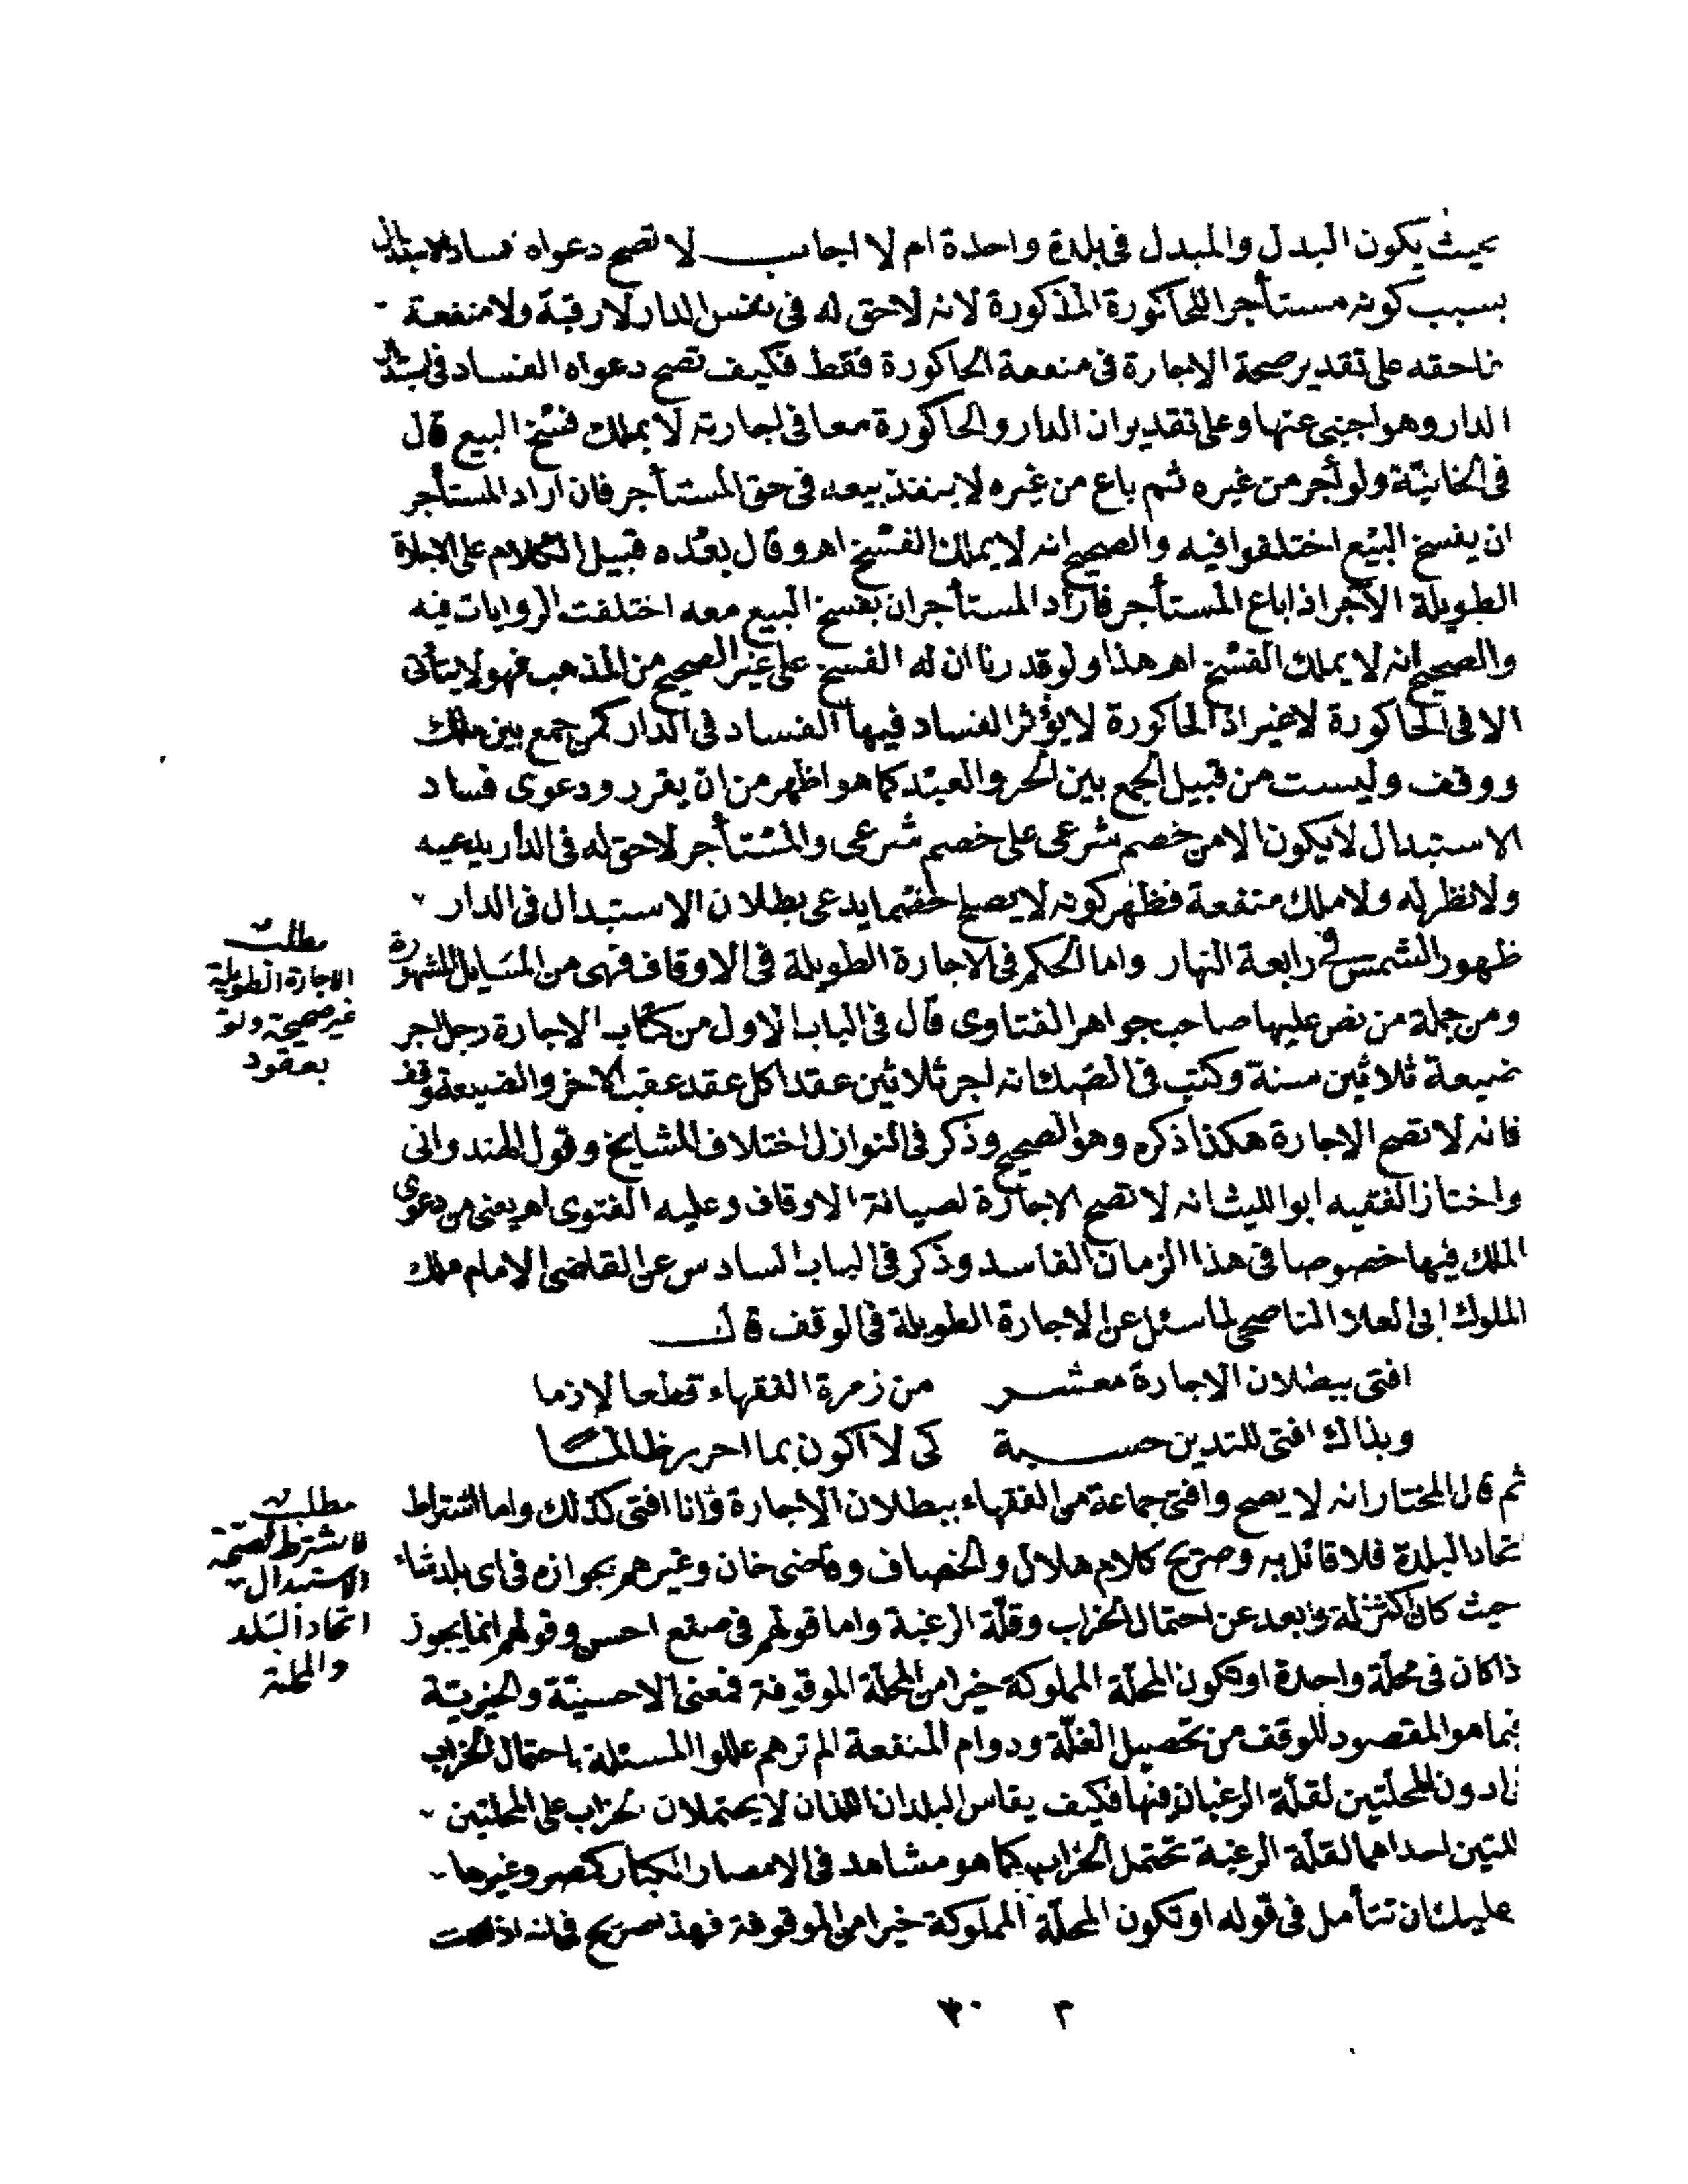 بحيث يكون البدل والمبدل فى بلدة واحدة ام لا اجاب لا تصح دعواه فساد الاستبدال
بسبب كونه مستأجرا للحاكورة المذكورة لانه لا حق له فى نفس الدار لا رقبة ولا منفعة
فاحقه على تقدير صحة الاجارة فى منفعة الحاكورة فقط فكيف تصح دعواه الفساد فى استبدال
الدار وهو اجنبى عنها وعلى تقدير ان الدار والحاكورة معا فى اجارته لا يملك فسخ البيع قال
فى الخانيّة ولو أجر من غيره ثم باع من غيره لا ينفذ بيعه فى حق المستأجر فان اراد المستأجر
ان يفسخ البيع اختلفوا فيه والصحيح انه لا يملك الفسخ اهـ وقال بعده قبيل الكلام على الاجارة
الطويلة الآجر اذا باع المستأجر فاراد المستأجر ان يفسخ البيع معه اختلفت الروايات فيه
والصحيح انه لا يملك الفسخ اهـ هذا ولو قدرنا ان له الفسخ على غير الصحيح من المذهب فهو لا يتأتى
الا فى الحاكورة لا غير اذ الحاكورة لا يؤثر الفساد فيها الفساد فى الدار كمن جمع بين ملك
ووقف وليست من قبيل الجمع بين الحر والعبد كما هو اظهر من ان يقرر ودعوى فساد
الاستبدال لا يكون الا من خصم شرعى على خصم شرعى والمستأجر لا حق له فى الدار يدعيه
ولا نظر له ولا ملك منفعة فظهر كونه لا يصلح خصما يدعى بطلان الاستبدال فى الدار
ظهور الشمس فى رابعة النهار واما الحكم فى الاجارة الطويلة فى الاوقاف فهى من المسايل المشهورة
مطلب
الاجارة الطويلة
غير صحيحة ولو
بعقود
ومن جملة من نص عليها صاحب جواهر الفتاوى قال فى الباب الاول من كتاب الاجارة رجل اجر
ضيعة ثلاثين سنة وكتب فى الصك انه اجر ثلاثين عقدا كل عقد عقب الاخر والضيعة وقف
فانه لا تصح الاجارة هكذا ذكره وهو الصحيح وذكر فى النوازل اختلاف المشايخ وقول الهندوانى
واختار الفقيه ابو الليث انه لا تصح الاجارة لصيانة الاوقاف وعليه الفتوى اهـ يعنى من دعوى
الملك فيها خصوصا فى هذا الزمان الفاسد وذكر فى الباب السادس عن القاضى الامام ملك
الملوك ابى العلا الناصحى لما سئل عن الاجارة الطويلة فى الوقف قال
افتى ببطلان الاجارة معشر من زمرة الفقهاء قطعا لازما
وبذاك افتى للتدين حسبة كى لا اكون بما احرر ظالما
ثم قال المختار انه لا يصح وافتى جماعة من الفقهاء ببطلان الاجارة وانا افتى كذلك واما اشتراط
مطلب
لا يشترط لصحة
الاستبدال
اتحاد البلد
والمحلة
تحاد البلدة فلا قائل به وصريح كلام هلال والخصاف وقاضى خان وغيرهم بجوازه فى اى بلد شاء
حيث كان اكثر غلة وابعد عن احتمال الخراب وقلّة الرغبة واما قولهم فى صقع احسن وقولهم انما يجوز
ذا كان فى محلّة واحدة او تكون المحلّة المملوكة خيرا من المحلّة الموقوفة فمعنى الاحسنيّة والخيريّة
فيما هو المقصود للوقف من تحصيل الغلّة ودوام المنفعة الم ترهم عللوا المسئلة باحتمال الخراب
دون المحلّتين لقلّة الرغبات فيها فكيف يقاس البلدان اللذان لا يحتملان خراب على المحلتين
للتين احداهما لقلّة الرغبة تحتمل الخراب كما هو مشاهد فى الامصار الكبار كمصر وغيرها
عليك ان تتأمل فى قوله او تكون المحلّة المملوكة خيرا من الموقوفة فهذا صريح فى انه اذا كانت